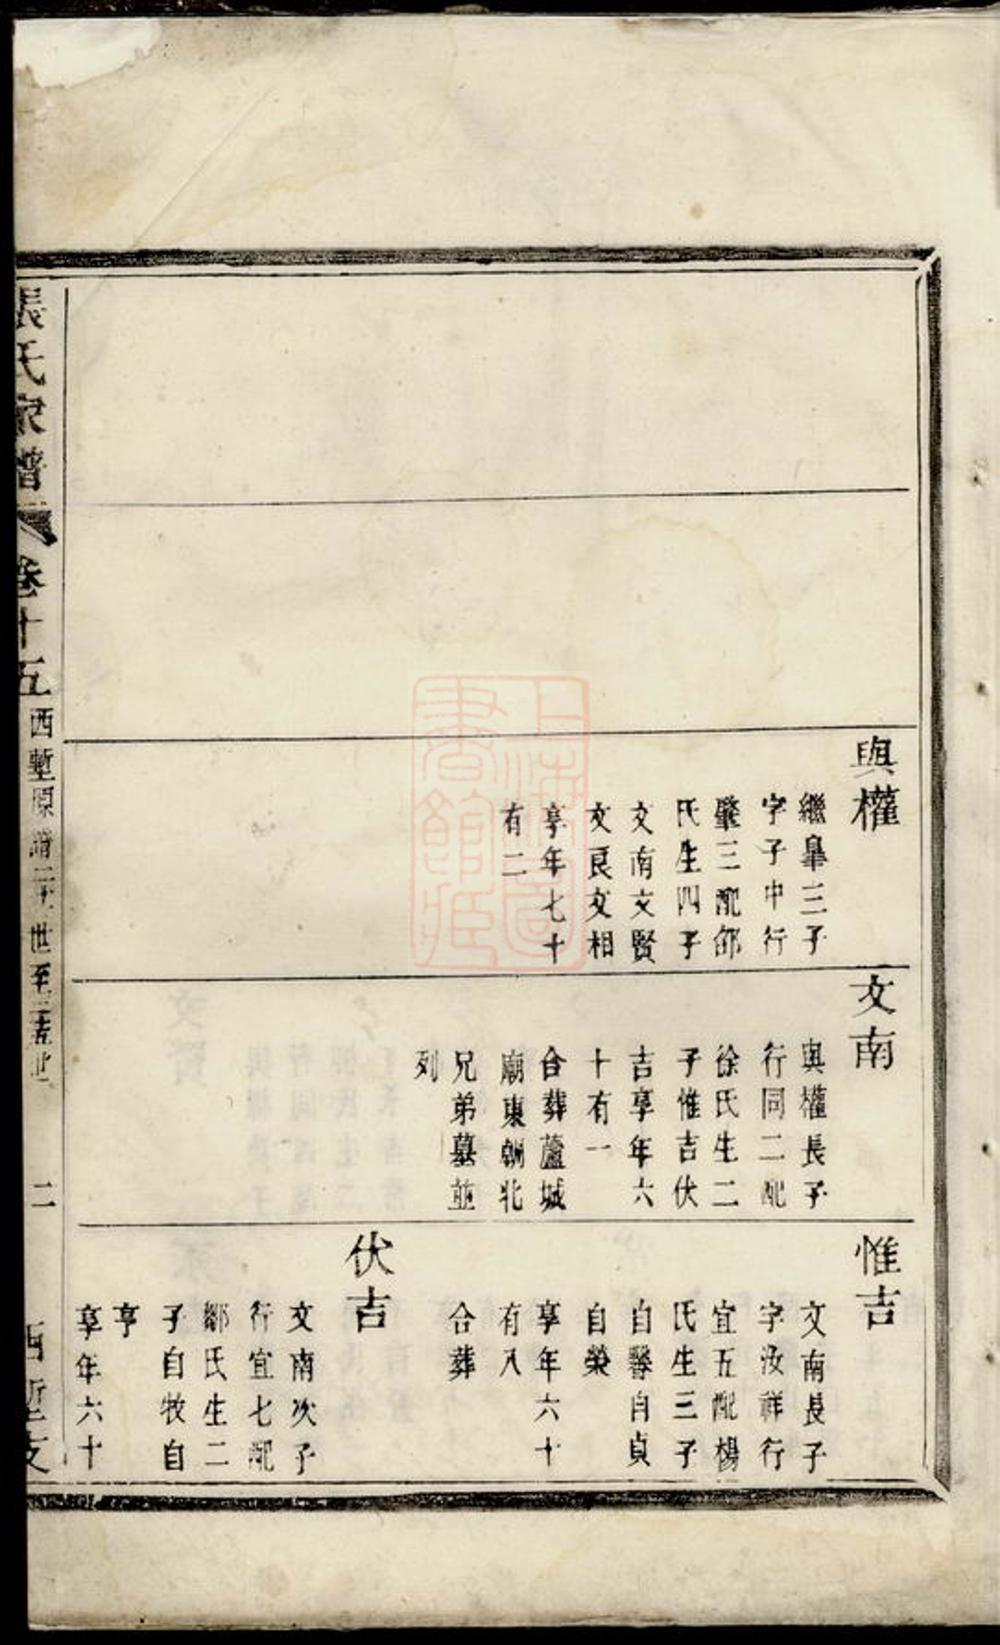 與權
繼臯三子
字子中行
肇三配邵
氏生四子
文南文賢
文良文相
享年七十
有二
文南
與權長子
行同二配
徐氏生二
子惟吉伏
吉享年六
十有一
合葬蘆城
廟東朝北
兄弟墓並
列
惟吉
文南長子
字汝祥行
宜五配楊
氏生三子
自馨自貞
自榮
享年六十
有八
合葬
伏吉
文南次子
行宜七配
鄒氏生二
子自牧自
亨
享年六十
張氏家譜
卷十五
西塹原譜二十一世至二十五世
二
西塹支
上海圖書館藏